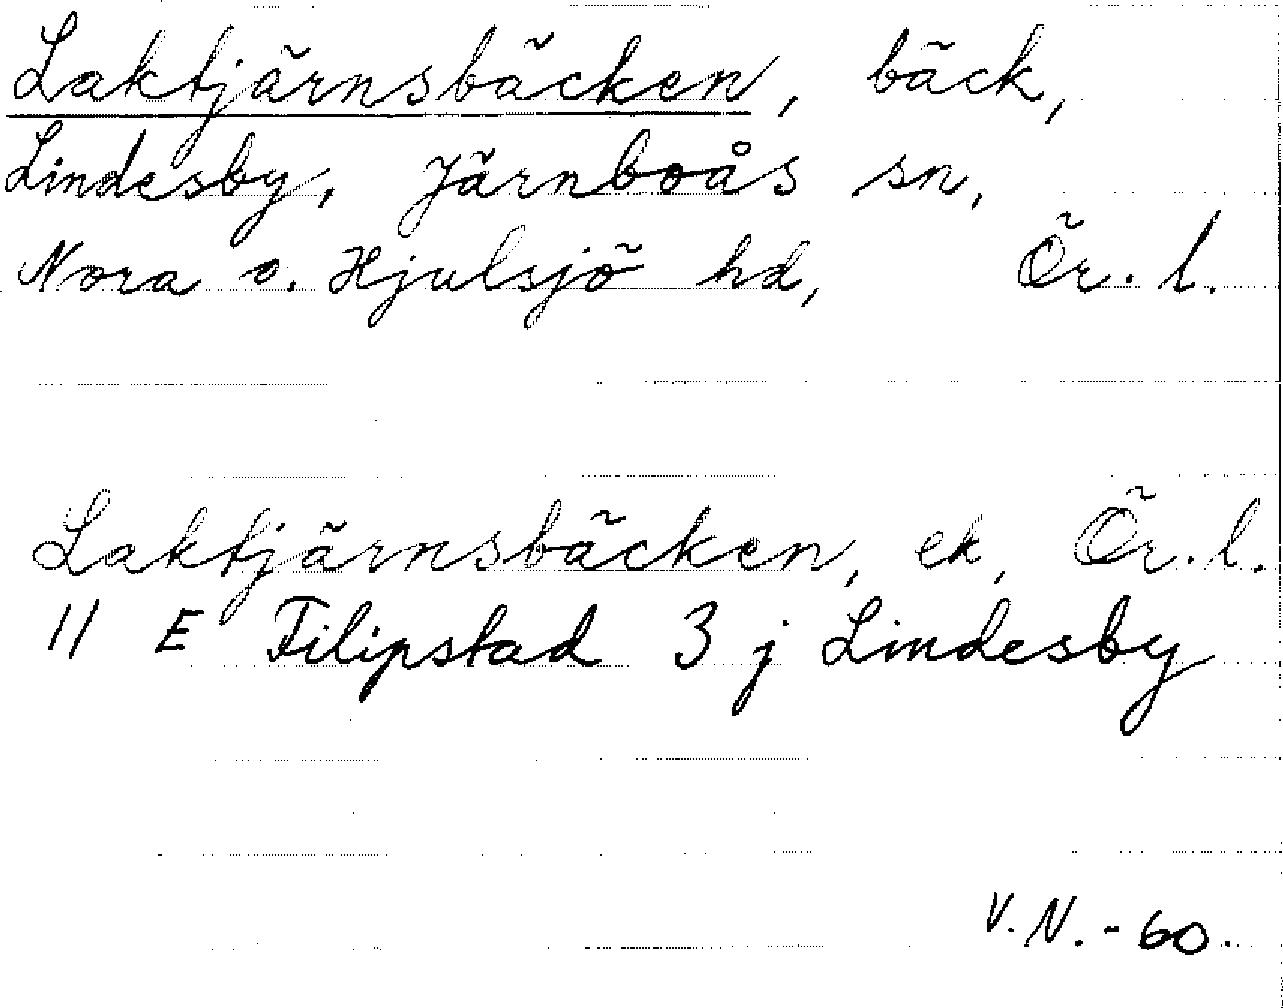 Laktjärnsbäcken, bäck,
Lindesby, Järnboås sn,
Nora o. Hjulsjö hd, Ör. l.
Laktjärnsbäcken, ek, Ör. l.
11 E Filipstad 3 j Lindesby
V. N. - 60.